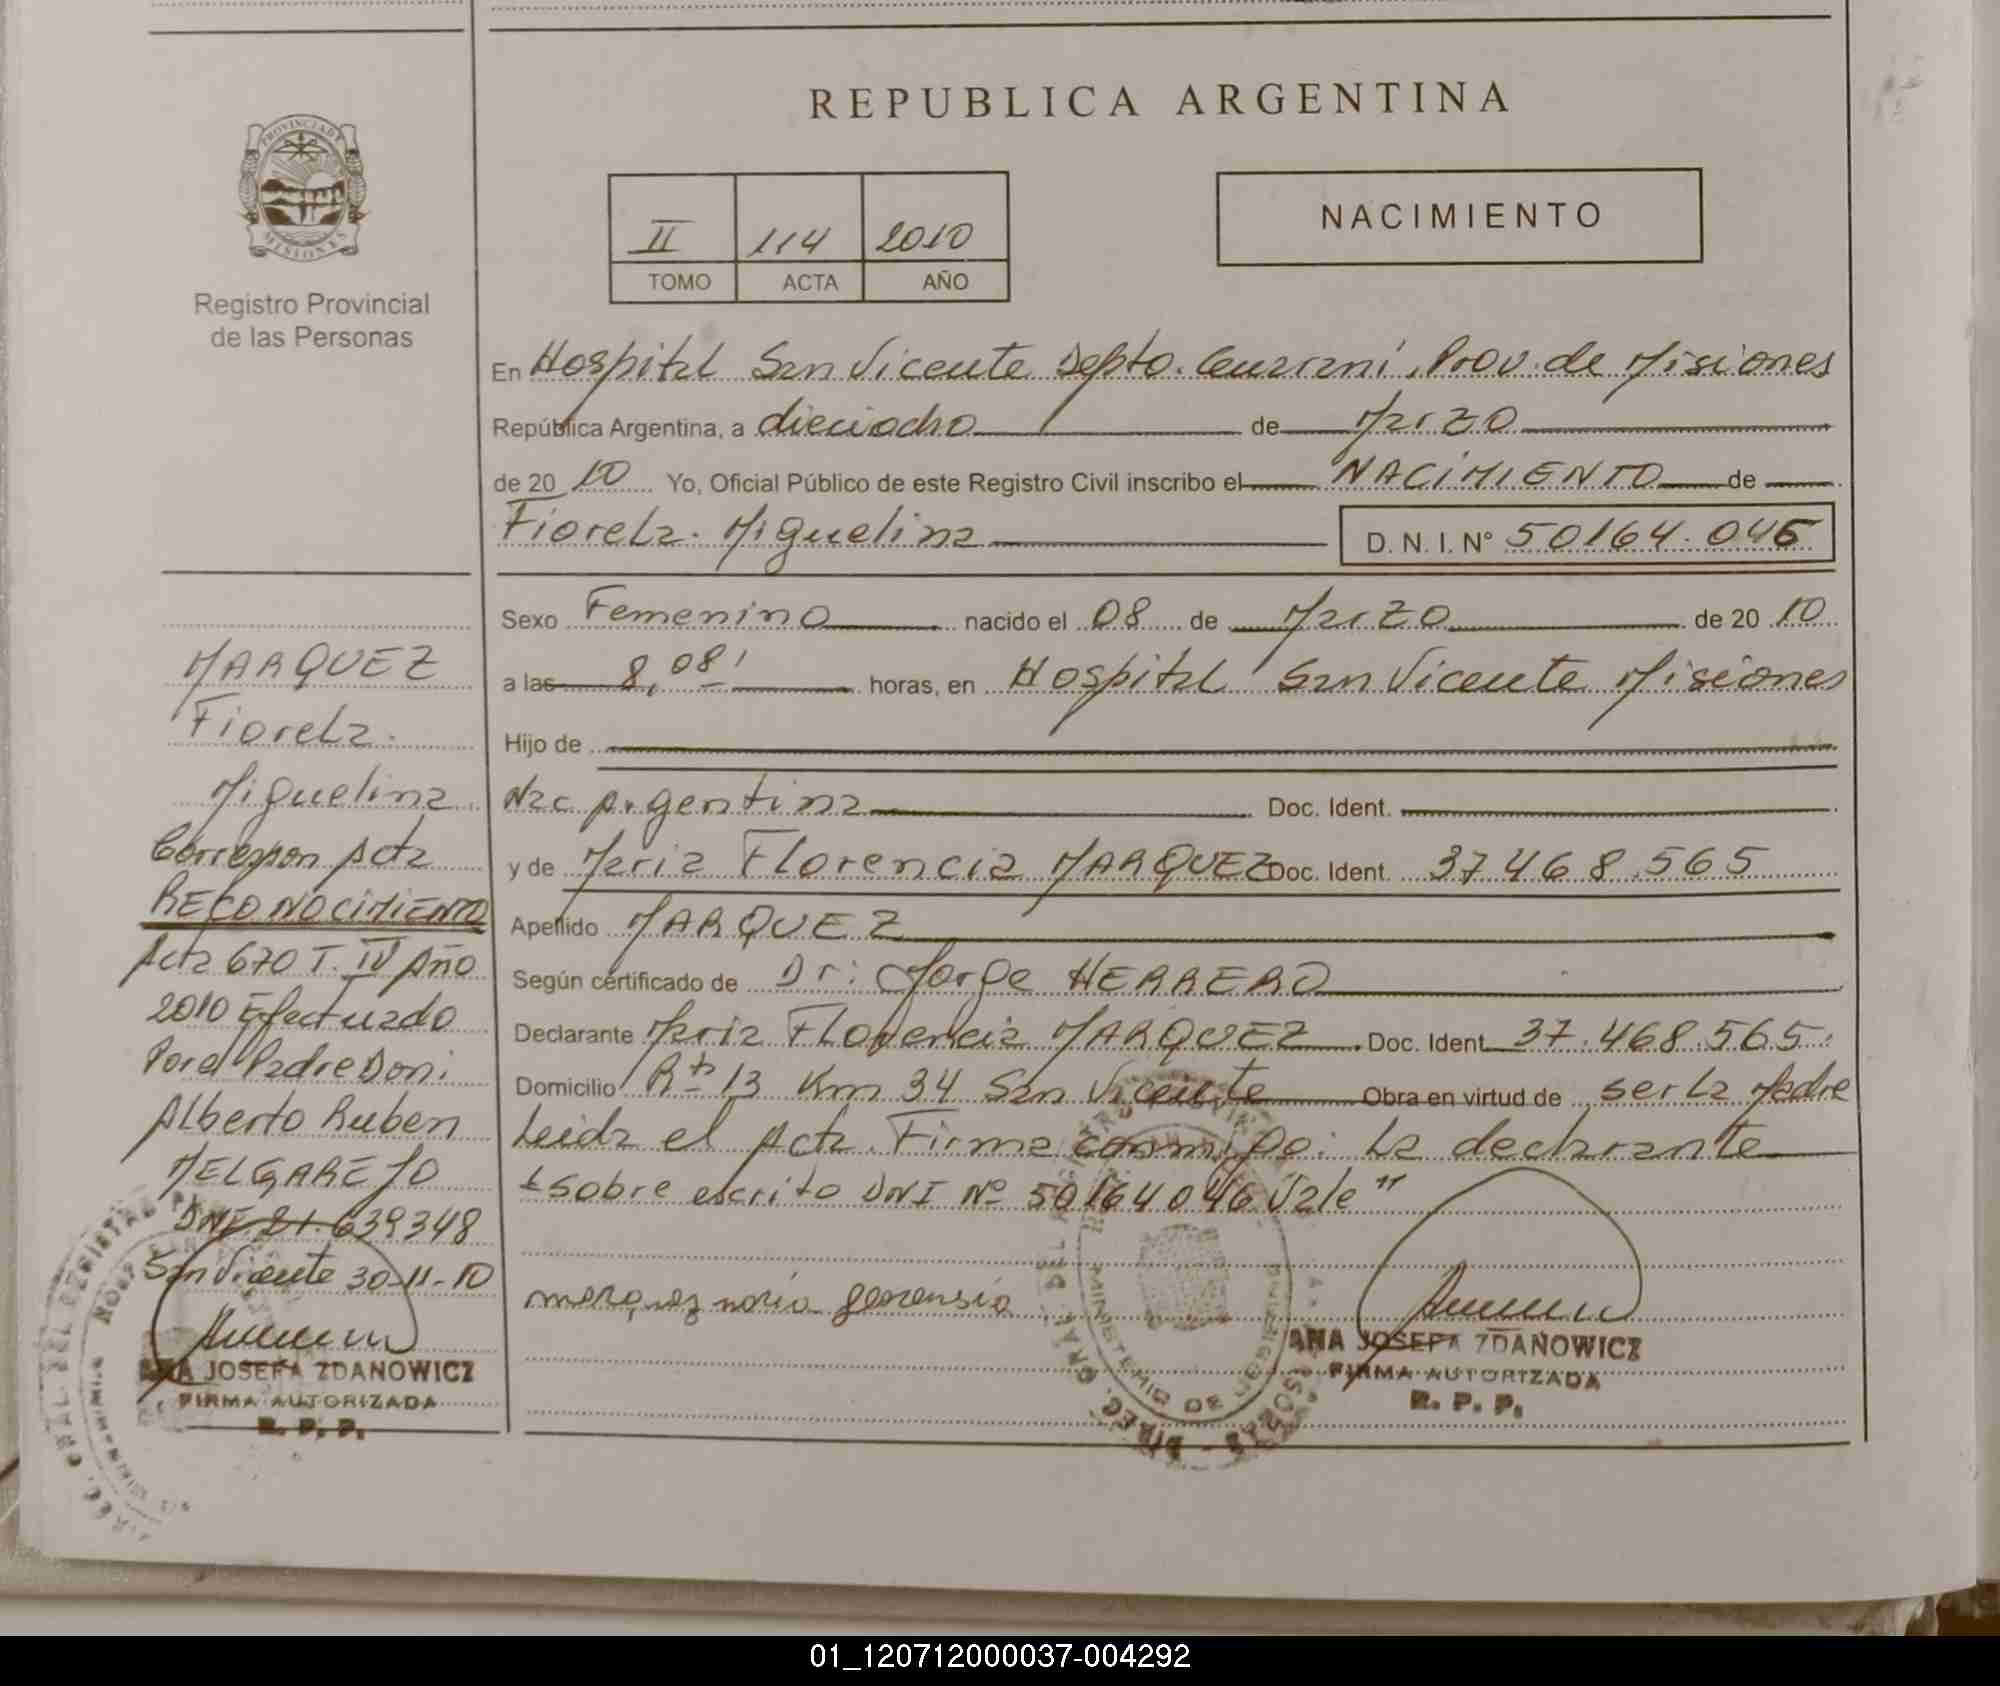 REPUBLICA ARGENTINA
PROVINCIA DE
MISIONES
Registro Provincial
de las Personas
II 114 2010
TOMO ACTA AÑO
NACIMIENTO
En Hospital San Vicente Depto. Guaraní, Prov. de Misiones
República Argentina, a dieciocho de Marzo
de 20 10 Yo, Oficial Público de este Registro Civil inscribo el NACIMIENTO de
Fiorela Miguelina D.N.I. N° 50164.046
Sexo Femenino nacido el 08 de Marzo de 20 10
a las 8,08' horas, en Hospital San Vicente Misiones
Hijo de
Nac Argentina Doc. Ident.
y de Maria Florencia MARQUEZ Doc. Ident. 37468.565
Apellido MARQUEZ
Según certificado de Dr: Jorge HERRERO
Declarante Maria Florencia MARQUEZ Doc. Ident 37.468.565.
Domicilio Rta 13 Km 34 San Vicente Obra en virtud de ser la Madre
Leida el Acta. Firma conmigo: La declarante
"sobre escrito DNI Nº 50164046 Vale"
marquez maria
ANA JOSEFA ZDANOWICZ
FIRMA AUTORIZADA
R. P. P.
MARQUEZ
Fiorela.
Miguelina.
Correspon Acta
RECONOCIMIENTO
Acta 670 T. IV Año
2010 Efectuado
Por el Padre Don:
Alberto Ruben
MELGAREJO
DNI. 21.639348
San Vicente 30-11-10
ANA JOSEFA ZDANOWICZ
FIRMA AUTORIZADA
R. P. P.
MINISTERIO DE GOBIERNO
01_120712000037-004292